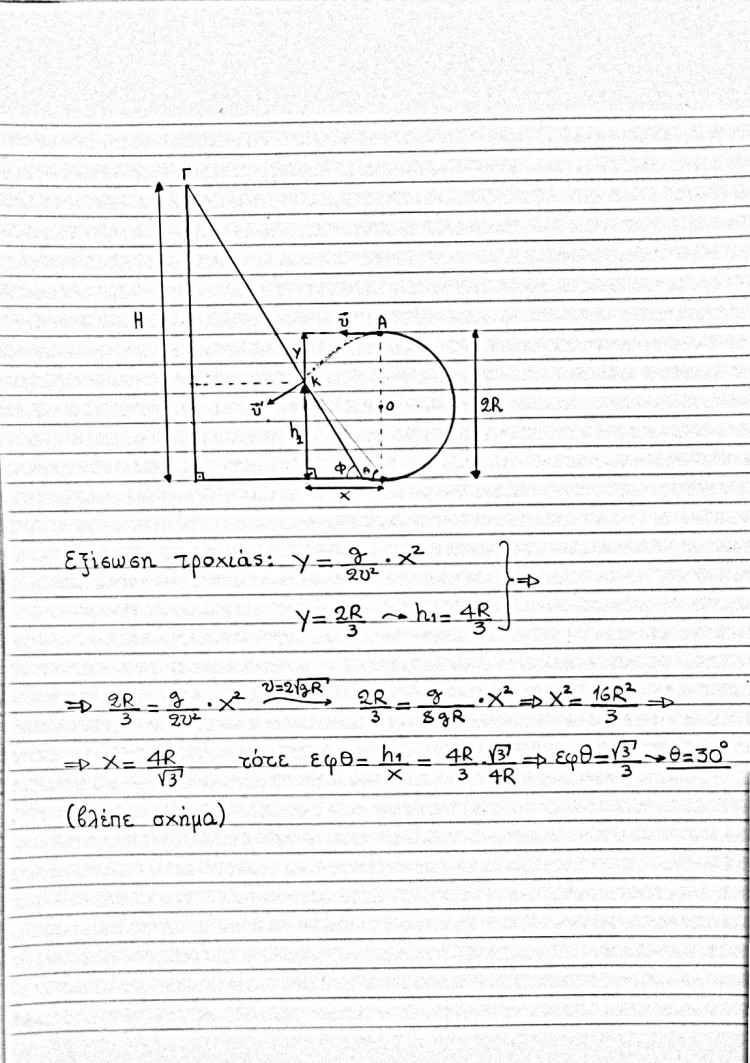 Γ
H
υ⃗ A
y
K
υ⃗
O
2R
h₁
φ θ
x
Εξίσωση τροχιάς: y = g/2υ² · x²
y = 2R/3 ⤳ h₁ = 4R/3 } ⇒
⇒ 2R/3 = g/2υ² · x² υ=2√gR → 2R/3 = g/8gR · x² ⇒ x² = 16R²/3 ⇒
⇒ x = 4R/√3 τότε εφθ = h₁/x = 4R/3 √3/4R ⇒ εφθ = √3/3 → θ = 30°
(βλέπε σχήμα)